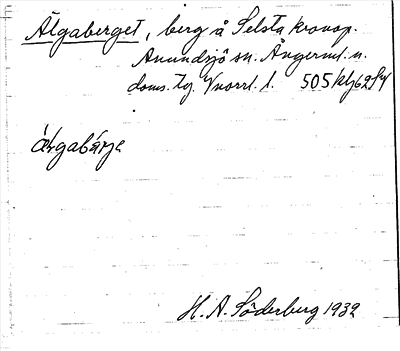 Älgaberget, berg å Selsta kronop.
Anundsjö sn. Ångerml. n.
doms. tg. V norrl. l. 505 kl
älgabärje
H. A. Söderberg 1932